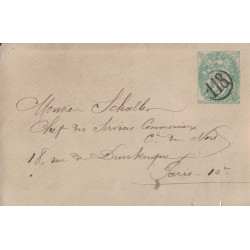 118
Monsieur Schalbar
Chef des Services Commerciaux
Cie du Nord
18, rue de Dunkerque
Paris - 10e